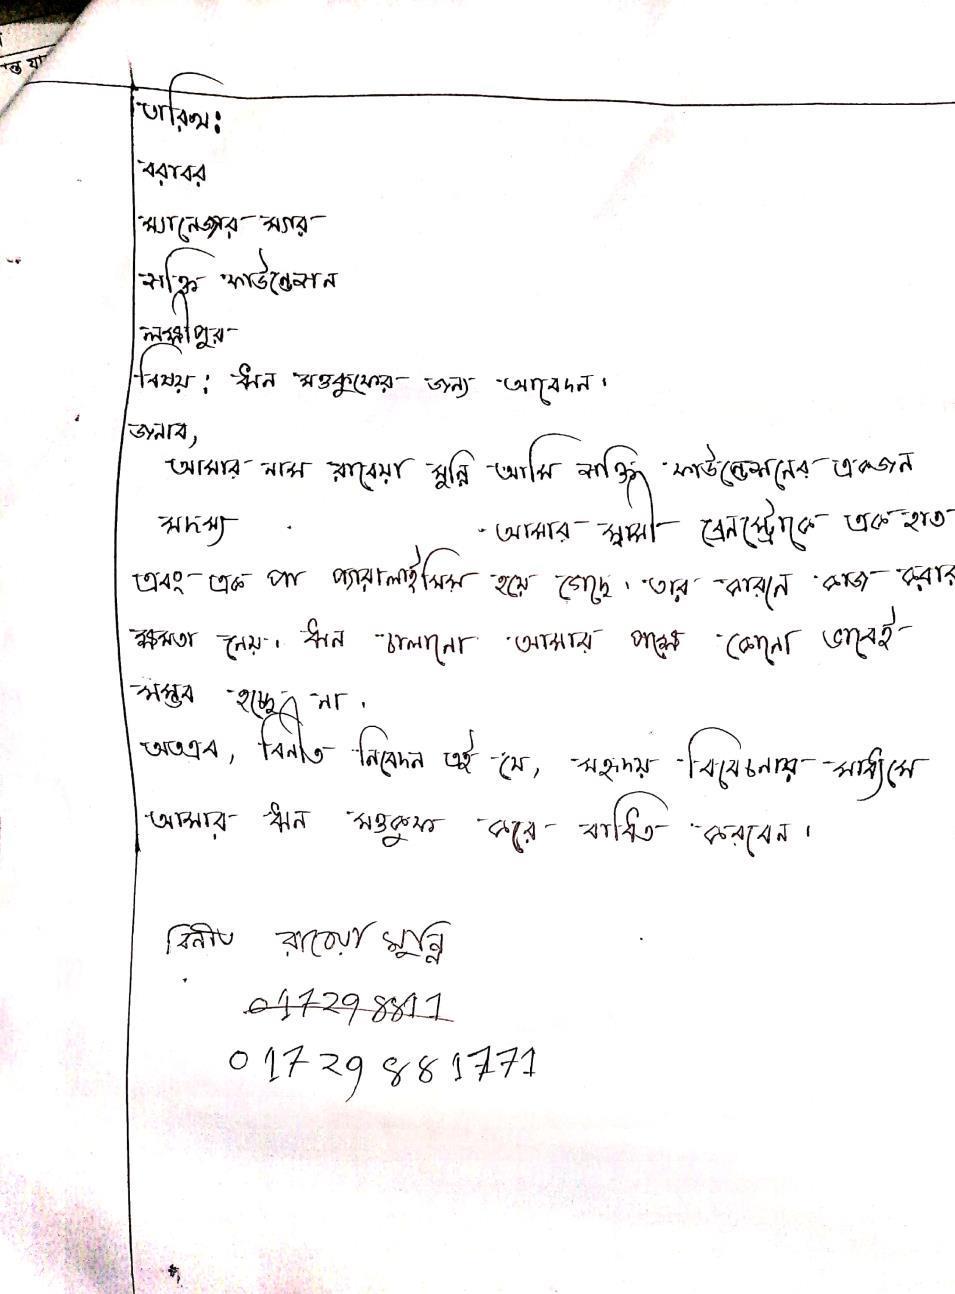 তারিখ:
বরাবর
ম্যানেজার স্যার
শক্তি ফাউন্ডেশন
লক্ষীপুর
বিষয়: ঋন মওকুফের জন্য আবেদন।
জনাব,
আমার নাম রাবেয়া মুন্নি আমি শক্তি ফাউন্ডেশনের একজন
সদস্য আমার স্বামী ব্রেনস্ট্রোকে এক হাত
এবং এক পা প্যারালাইসিস হয়ে গেছে। তার কারনে কাজ করার
ক্ষমতা নেয়। ঋন চালানো আমার পক্ষে কোনো ভাবেই
সম্ভব হচ্ছে না।
অতএব, বিনীত নিবেদন এই যে, সহৃদয় বিবেচনায় মাধ্যমে
আমার ঋন মওকুফ করে বাধিত করবেন।
বিনীত রাবেয়া মুন্নি
017298811
01729881771